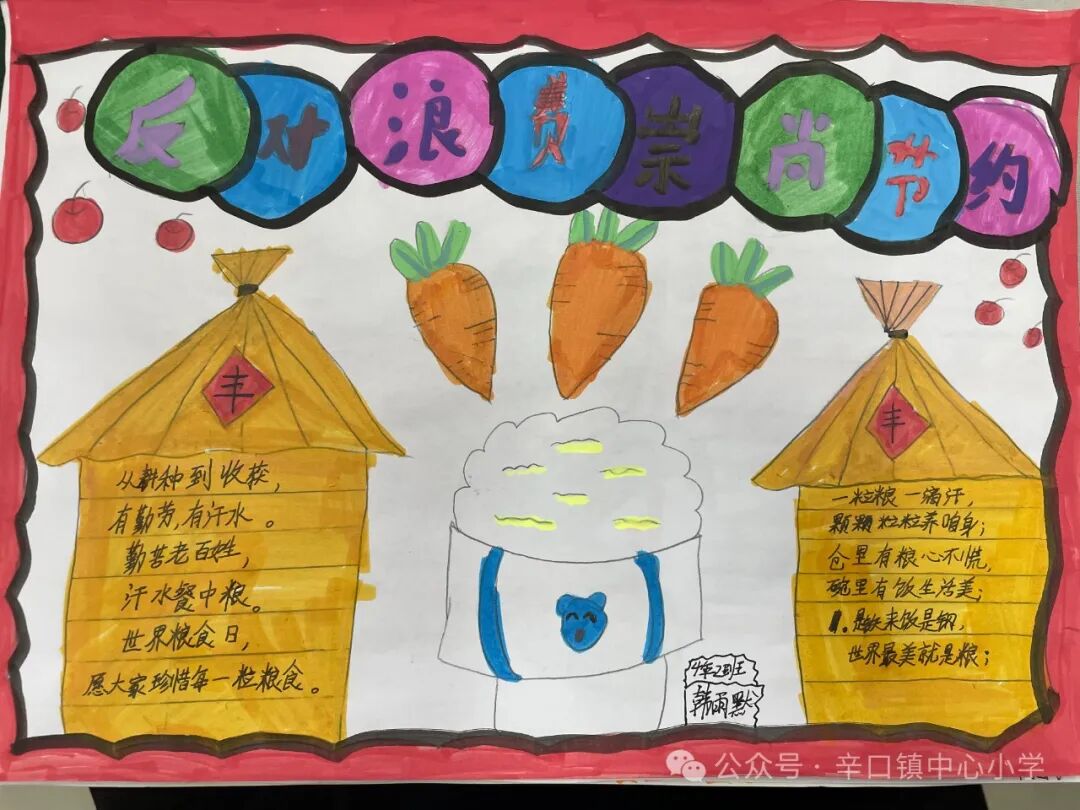 反对浪费崇尚节约
丰
从耕种到收获，
有勤劳，有汗水。
勤苦老百姓，
汗水餐中粮。
世界粮食日，
愿大家珍惜每一粒粮食。
丰
一粒粮一滴汗，
颗颗粒粒养咱身；
仓里有粮心不慌，
碗里有饭生活美；
来饭是钢，
世界最美就是粮；
4年2班
韩雨默
公众号·辛口镇中心小学